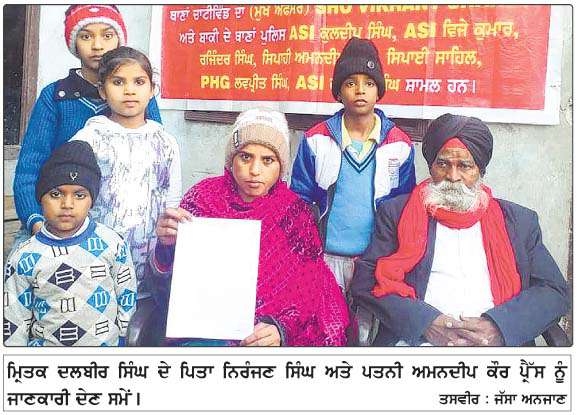 ਥਾਣਾ ਚਾਟੀਵਿੰਡ ਦਾ (ਮੁੱਖ ਅਫ਼ਸਰ) SHO
ਅਤੇ ਬਾਕੀ ਦੇ ਥਾਣਾ ਪੁਲਿਸ ASI ਕੁਲਦੀਪ ਸਿੰਘ, ASI ਵਿਜੇ ਕੁਮਾਰ,
ਰਜਿੰਦਰ ਸਿੰਘ, ਸਿਪਾਹੀ ਅਮਨਦੀਪ ਸਿਪਾਈ ਸਾਹਿਲ,
PHG ਲਵਪ੍ਰੀਤ ਸਿੰਘ, ASI ਸਿੰਘ ਸ਼ਾਮਲ ਹਨ।
ਮ੍ਰਿਤਕ ਦਲਬੀਰ ਸਿੰਘ ਦੇ ਪਿਤਾ ਨਿਰੰਜਣ ਸਿੰਘ ਅਤੇ ਪਤਨੀ ਅਮਨਦੀਪ ਕੌਰ ਪ੍ਰੈੱਸ ਨੂੰ
ਜਾਣਕਾਰੀ ਦੇਣ ਸਮੇਂ। ਤਸਵੀਰ : ਜੱਸਾ ਅਨਜਾਣ